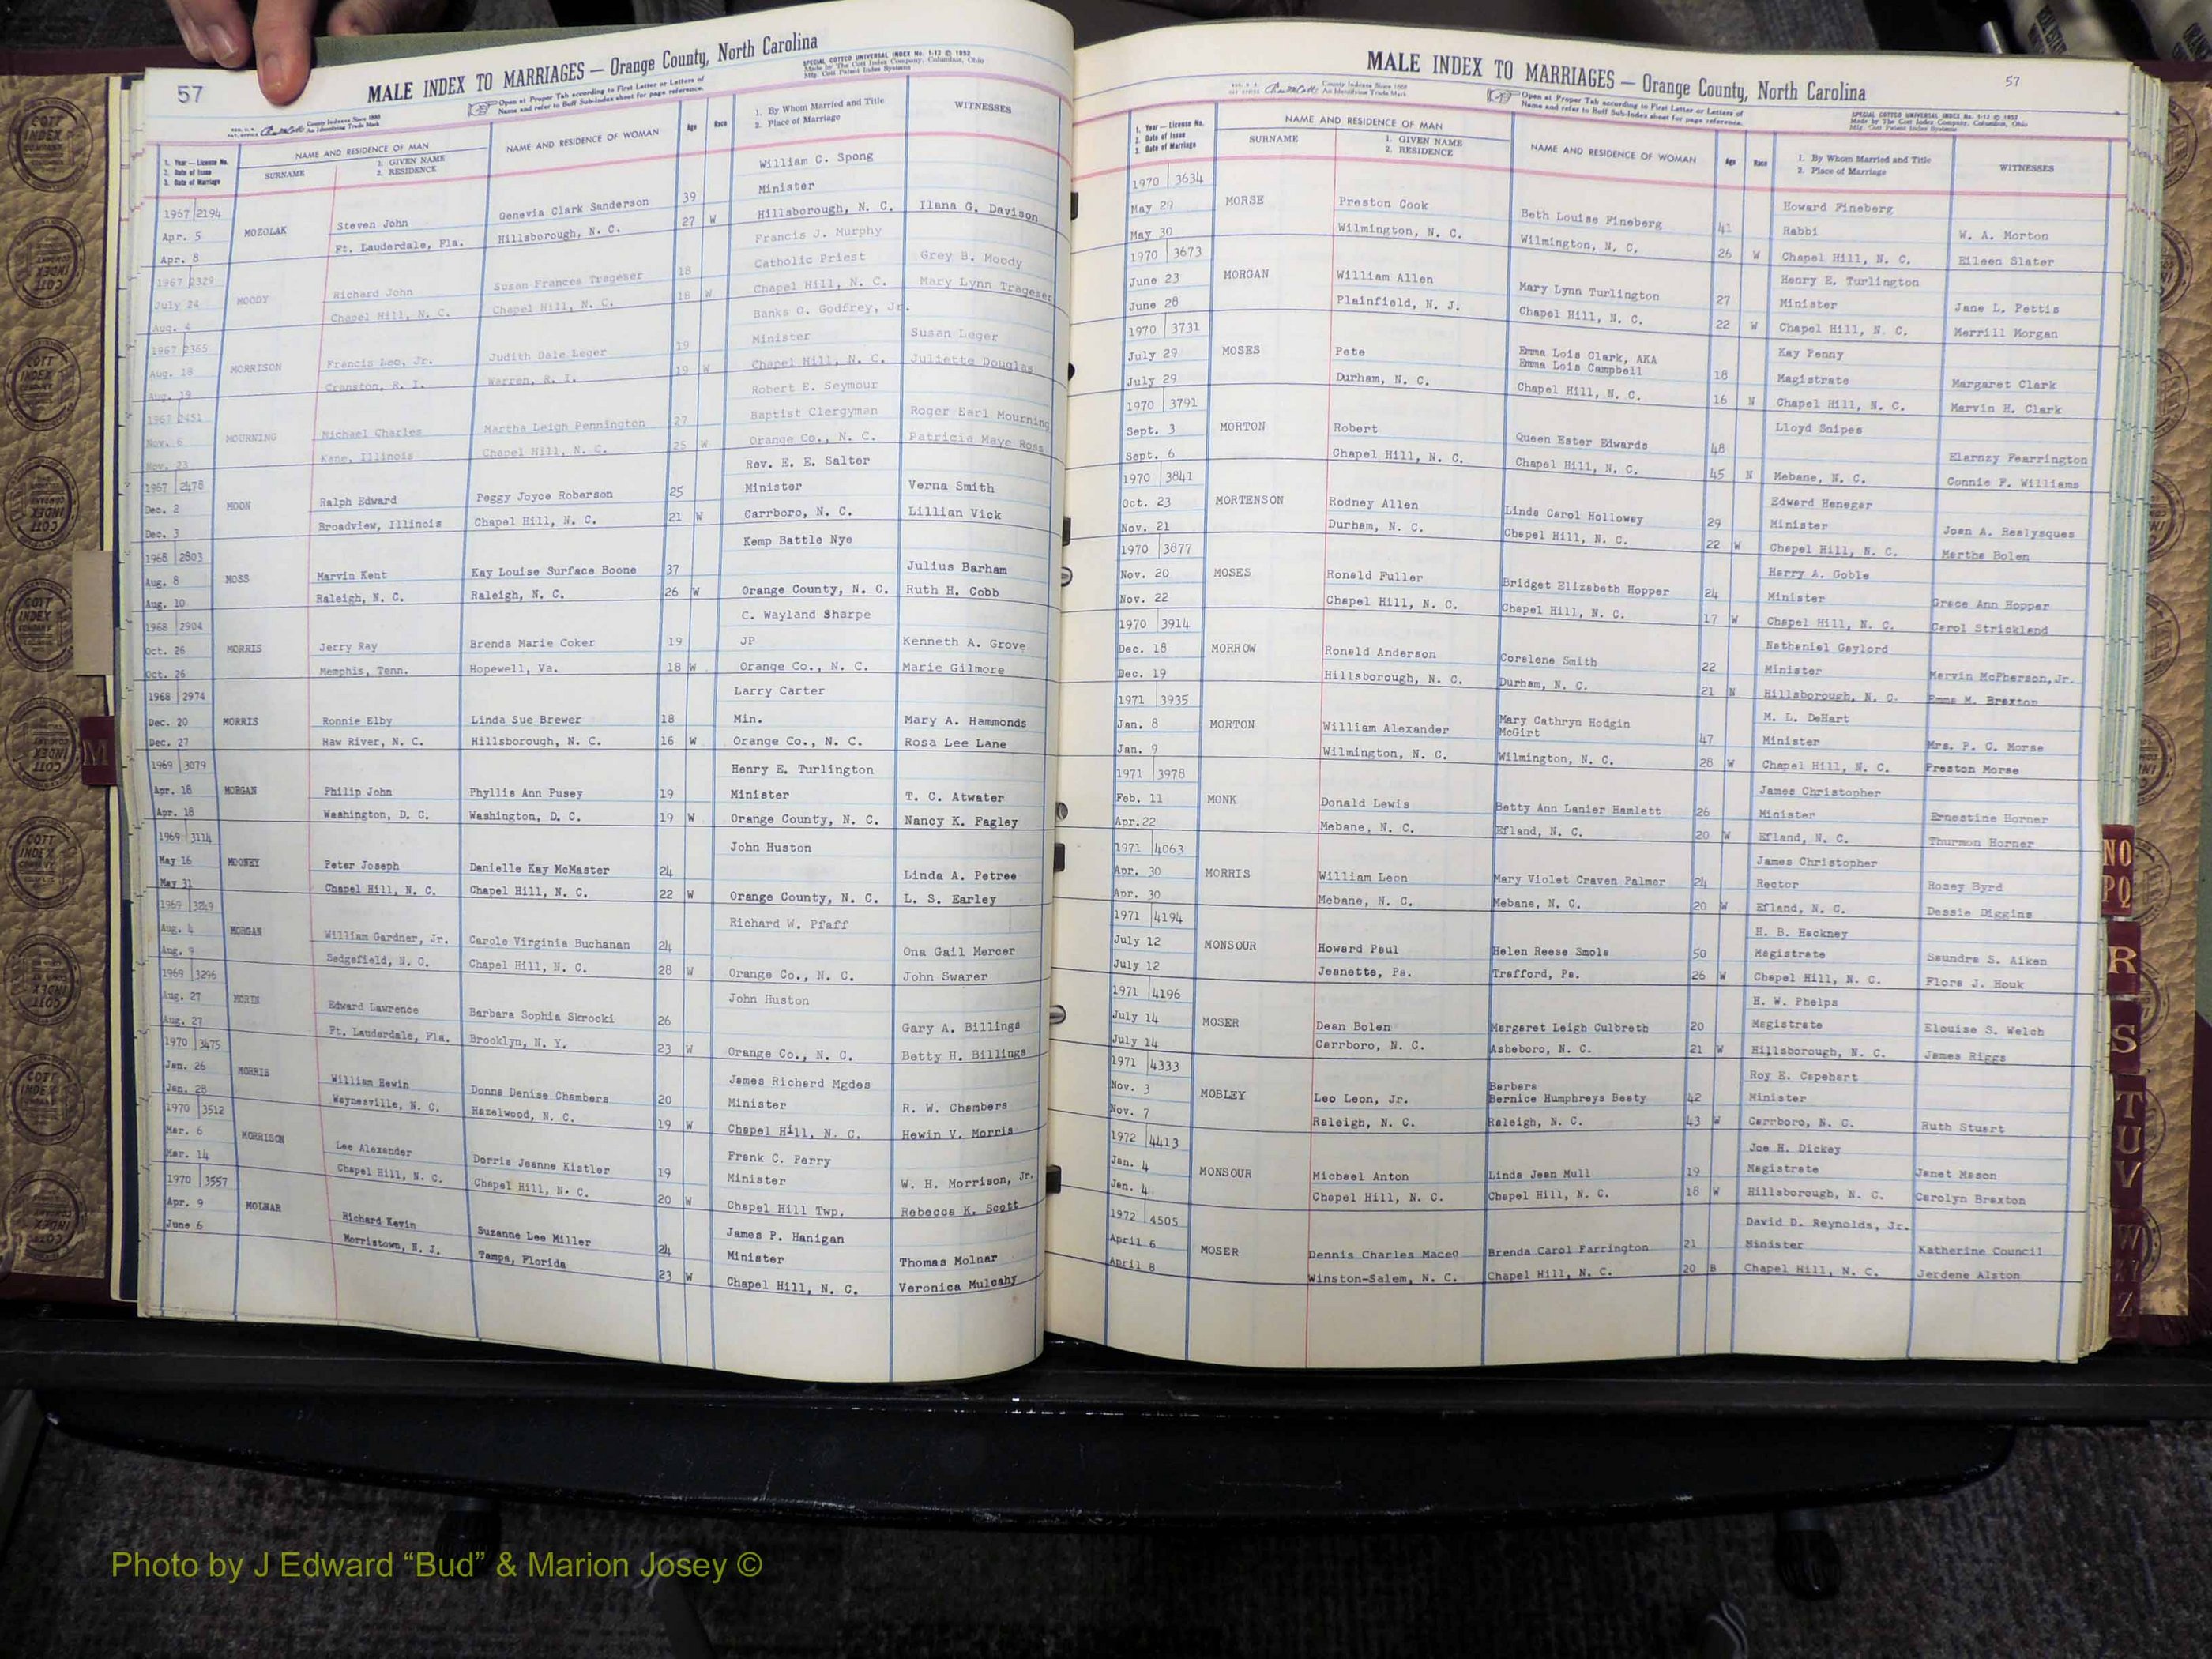 57
MALE INDEX TO MARRIAGES — Orange County, North Carolina
SPECIAL COTTCO UNIVERSAL INDEX No. 1-12 © 1952
Made by The Cott Index Company, Columbus, Ohio
Mfg. Cott Patent Index Systems
Open at Proper Tab according to First Letter or Letters of
Name and refer to Buff Sub-Index sheet for page reference.
County Indexes Since 1888
An Identifying Trade Mark
1. Year — License No.
2. Date of Issue
3. Date of Marriage
NAME AND RESIDENCE OF MAN
SURNAME
1. GIVEN NAME
2. RESIDENCE
NAME AND RESIDENCE OF WOMAN
Age
Race
1. By Whom Married and Title
2. Place of Marriage
WITNESSES
William C. Spong
1967 2194 Steven John Genevia Clark Sanderson 39 Minister
Apr. 5 MOZOLAK Ft. Lauderdale, Fla. Hillsborough, N. C. 27 W Hillsborough, N. C. Ilana G. Davison
Apr. 8 Francis J. Murphy
1967 2329 Richard John Susan Frances Trageser 18 Catholic Priest Grey B. Moody
July 24 MOODY Chapel Hill, N. C. Chapel Hill, N. C. 18 W Chapel Hill, N. C. Mary Lynn Trageser
Aug. 4 Banks O. Godfrey, Jr.
1967 2365 Francis Leo, Jr. Judith Dale Leger 19 Minister Susan Leger
Aug. 18 MORRISON Cranston, R. I. Warren, R. I. 19 W Chapel Hill, N. C. Juliette Douglas
Aug. 19 Robert E. Seymour
1967 2451 Michael Charles Martha Leigh Pennington 27 Baptist Clergyman Roger Earl Mourning
Nov. 6 MOURNING Kane, Illinois Chapel Hill, N. C. 25 W Orange Co., N. C. Patricia Maye Ross
Nov. 23 Rev. E. E. Salter
1967 2478 Ralph Edward Peggy Joyce Roberson 25 Minister Verna Smith
Dec. 2 MOON Broadview, Illinois Chapel Hill, N. C. 21 W Carrboro, N. C. Lillian Vick
Dec. 3 Kemp Battle Nye
1968 2803 Marvin Kent Kay Louise Surface Boone 37 Julius Barham
Aug. 8 MOSS Raleigh, N. C. Raleigh, N. C. 26 W Orange County, N. C. Ruth H. Cobb
Aug. 10 C. Wayland Sharpe
1968 2904 Jerry Ray Brenda Marie Coker 19 JP Kenneth A. Grove
Oct. 26 MORRIS Memphis, Tenn. Hopewell, Va. 18 W Orange Co., N. C. Marie Gilmore
Oct. 26 Larry Carter
1968 2974
Dec. 20 MORRIS Ronnie Elby Linda Sue Brewer 18 Min. Mary A. Hammonds
Dec. 27 Haw River, N. C. Hillsborough, N. C. 16 W Orange Co., N. C. Rosa Lee Lane
1969 3079 Henry E. Turlington
Apr. 18 MORGAN Philip John Phyllis Ann Pusey 19 Minister T. C. Atwater
Apr. 18 Washington, D. C. Washington, D. C. 19 W Orange County, N. C. Nancy K. Fagley
1969 3114 John Huston
May 16 MOONEY Peter Joseph Danielle Kay McMaster 24 Linda A. Petree
May 31 Chapel Hill, N. C. Chapel Hill, N. C. 22 W Orange County, N. C. L. S. Earley
1969 Richard W. Pfaff
Aug. 4 MORGAN William Gardner, Jr. Carole Virginia Buchanan 24 Ona Gail Mercer
Aug. 9 Sedgefield, N. C. Chapel Hill, N. C. 28 W Orange Co., N. C. John Swarer
1969 3296 John Huston
Aug. 27 MORIN Edward Lawrence Barbara Sophia Skrocki 26 Gary A. Billings
Aug. 27 Ft. Lauderdale, Fla. Brooklyn, N. Y. 23 W Orange Co., N. C. Betty H. Billings
1970 3475 James Richard Mgdes
Jan. 26 MORRIS William Hewin Donna Denise Chambers 20 Minister R. W. Chambers
Jan. 28 Waynesville, N. C. Hazelwood, N. C. 19 W Chapel Hill, N. C. Hewin V. Morris
1970 3512 Frank C. Perry
Mar. 6 MORRISON Lee Alexander Dorris Jeanne Kistler 19 Minister W. H. Morrison, Jr.
Mar. 14 Chapel Hill, N. C. Chapel Hill, N. C. 20 W Chapel Hill Twp. Rebecca K. Scott
1970 3557 James P. Hanigan
Apr. 9 MOLNAR Richard Kevin Suzanne Lee Miller 24 Minister Thomas Molnar
June 6 Morristown, N. J. Tampa, Florida 23 W Chapel Hill, N. C. Veronica Mulcahy
MALE INDEX TO MARRIAGES — Orange County, North Carolina
57
County Indexes Since 1888
An Identifying Trade Mark
Open at Proper Tab according to First Letter or Letters of
Name and refer to Buff Sub-Index sheet for page reference.
SPECIAL COTTCO UNIVERSAL INDEX No. 1-12 © 1952
Made by The Cott Index Company, Columbus, Ohio
Mfg. Cott Patent Index Systems
1. Year — License No.
2. Date of Issue
3. Date of Marriage
NAME AND RESIDENCE OF MAN
SURNAME
1. GIVEN NAME
2. RESIDENCE
NAME AND RESIDENCE OF WOMAN
Age
Race
1. By Whom Married and Title
2. Place of Marriage
WITNESSES
1970 3634 Howard Fineberg
May 29 MORSE Preston Cook Beth Louise Fineberg 41 Rabbi W. A. Morton
May 30 Wilmington, N. C. Wilmington, N. C. 26 W Chapel Hill, N. C. Eileen Slater
1970 3673 Henry E. Turlington
June 23 MORGAN William Allen Mary Lynn Turlington 27 Minister Jane L. Pettis
June 28 Plainfield, N. J. Chapel Hill, N. C. 22 W Chapel Hill, N. C. Merrill Morgan
1970 3731 Emma Lois Clark, AKA Kay Penny
July 29 MOSES Pete Emma Lois Campbell 18 Magistrate Margaret Clark
July 29 Durham, N. C. Chapel Hill, N. C. 16 N Chapel Hill, N. C. Marvin H. Clark
1970 3791 Lloyd Snipes
Sept. 3 MORTON Robert Queen Ester Edwards 48 Elarnzy Fearrington
Sept. 6 Chapel Hill, N. C. Chapel Hill, N. C. 45 N Mebane, N. C. Connie F. Williams
1970 3841 Edward Heneger
Oct. 23 MORTENSON Rodney Allen Linda Carol Holloway 29 Minister Joan A. Reslysques
Nov. 21 Durham, N. C. Chapel Hill, N. C. 22 W Chapel Hill, N. C. Martha Bolen
1970 3877 Harry A. Goble
Nov. 20 MOSES Ronald Fuller Bridget Elizabeth Hopper 24 Minister Grace Ann Hopper
Nov. 22 Chapel Hill, N. C. Chapel Hill, N. C. 17 W Chapel Hill, N. C. Carol Strickland
1970 3914 Nathaniel Gaylord
Dec. 18 MORROW Ronald Anderson Coralene Smith 22 Minister Marvin McPherson, Jr.
Dec. 19 Hillsborough, N. C. Durham, N. C. 21 N Hillsborough, N. C. Emma M. Braxton
1971 3935 M. L. DeHart
Jan. 8 MORTON William Alexander Mary Cathryn Hodgin McGirt 47 Minister Mrs. P. C. Morse
Jan. 9 Wilmington, N. C. Wilmington, N. C. 28 W Chapel Hill, N. C. Preston Morse
1971 3978 James Christopher
Feb. 11 MONK Donald Lewis Betty Ann Lanier Hamlett 26 Minister Ernestine Horner
Apr. 22 Mebane, N. C. Efland, N. C. 20 W Efland, N. C. Thurmon Horner
1971 4063 James Christopher
Apr. 30 MORRIS William Leon Mary Violet Craven Palmer 24 Rector Rosey Byrd
Apr. 30 Mebane, N. C. Mebane, N. C. 20 W Efland, N. C. Dessie Diggins
1971 4194 H. B. Hackney
July 12 MONSOUR Howard Paul Helen Reese Smola 50 Magistrate Saundra S. Aiken
July 12 Jeanette, Pa. Trafford, Pa. 26 W Chapel Hill, N. C. Flora J. Houk
1971 4196 H. W. Phelps
July 14 MOSER Dean Bolen Margaret Leigh Culbreth 20 Magistrate Elouise S. Welch
July 14 Carrboro, N. C. Asheboro, N. C. 21 W Hillsborough, N. C. James Riggs
1971 4333 Barbara Roy E. Capehart
Nov. 3 MOBLEY Leo Leon, Jr. Bernice Humphreys Beaty 42 Minister
Nov. 7 Raleigh, N. C. Raleigh, N. C. 43 W Carrboro, N. C. Ruth Stuart
1972 4413 Joe H. Dickey
Jan. 4 MONSOUR Michael Anton Linda Jean Mull 19 Magistrate Janet Mason
Jan. 4 Chapel Hill, N. C. Chapel Hill, N. C. 18 W Hillsborough, N. C. Carolyn Braxton
1972 4505 David D. Reynolds, Jr.
April 6 MOSER Dennis Charles Maceo Brenda Carol Farrington 21 Minister Katherine Council
April 8 Winston-Salem, N. C. Chapel Hill, N. C. 20 B Chapel Hill, N. C. Jerdene Alston
M
NO
PQ
R
S
T
U
V
W
Z
COTT
INDEX
COMPANY
Photo by J Edward “Bud” & Marion Josey ©